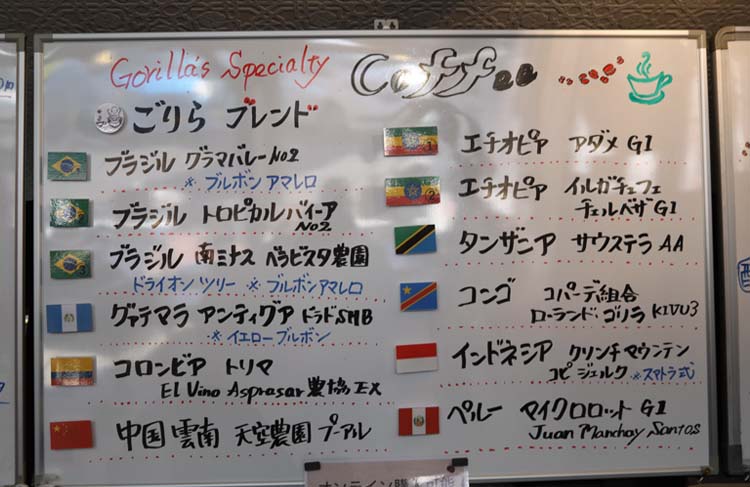 Gorilla's Specialty Coffee
ごりら ブレンド
ブラジル グラマバレー No2
※ ブルボン アマレロ
ブラジル トロピカルバイーア
No2
ブラジル 南ミナス ベラビスタ農園
ドライオンツリー ※ ブルボンアマレロ
グァテマラ アンティグア ドラドSHB
※イエローブルボン
コロンビア トリマ
El Vino Asprasar農協 EX
中国 雲南 天空農園 プーアル
エチオピア アダメ G1
エチオピア イルガチェフェ
チェルベザ G1
タンザニア サウステラ AA
コンゴ コパーデ組合
ローランド・ゴリラ KIVU3
インドネシア クリンチマウンテン
コピ ジェルク ※スマトラ式
ペルー マイクロロット G1
Juan Manchay Santos